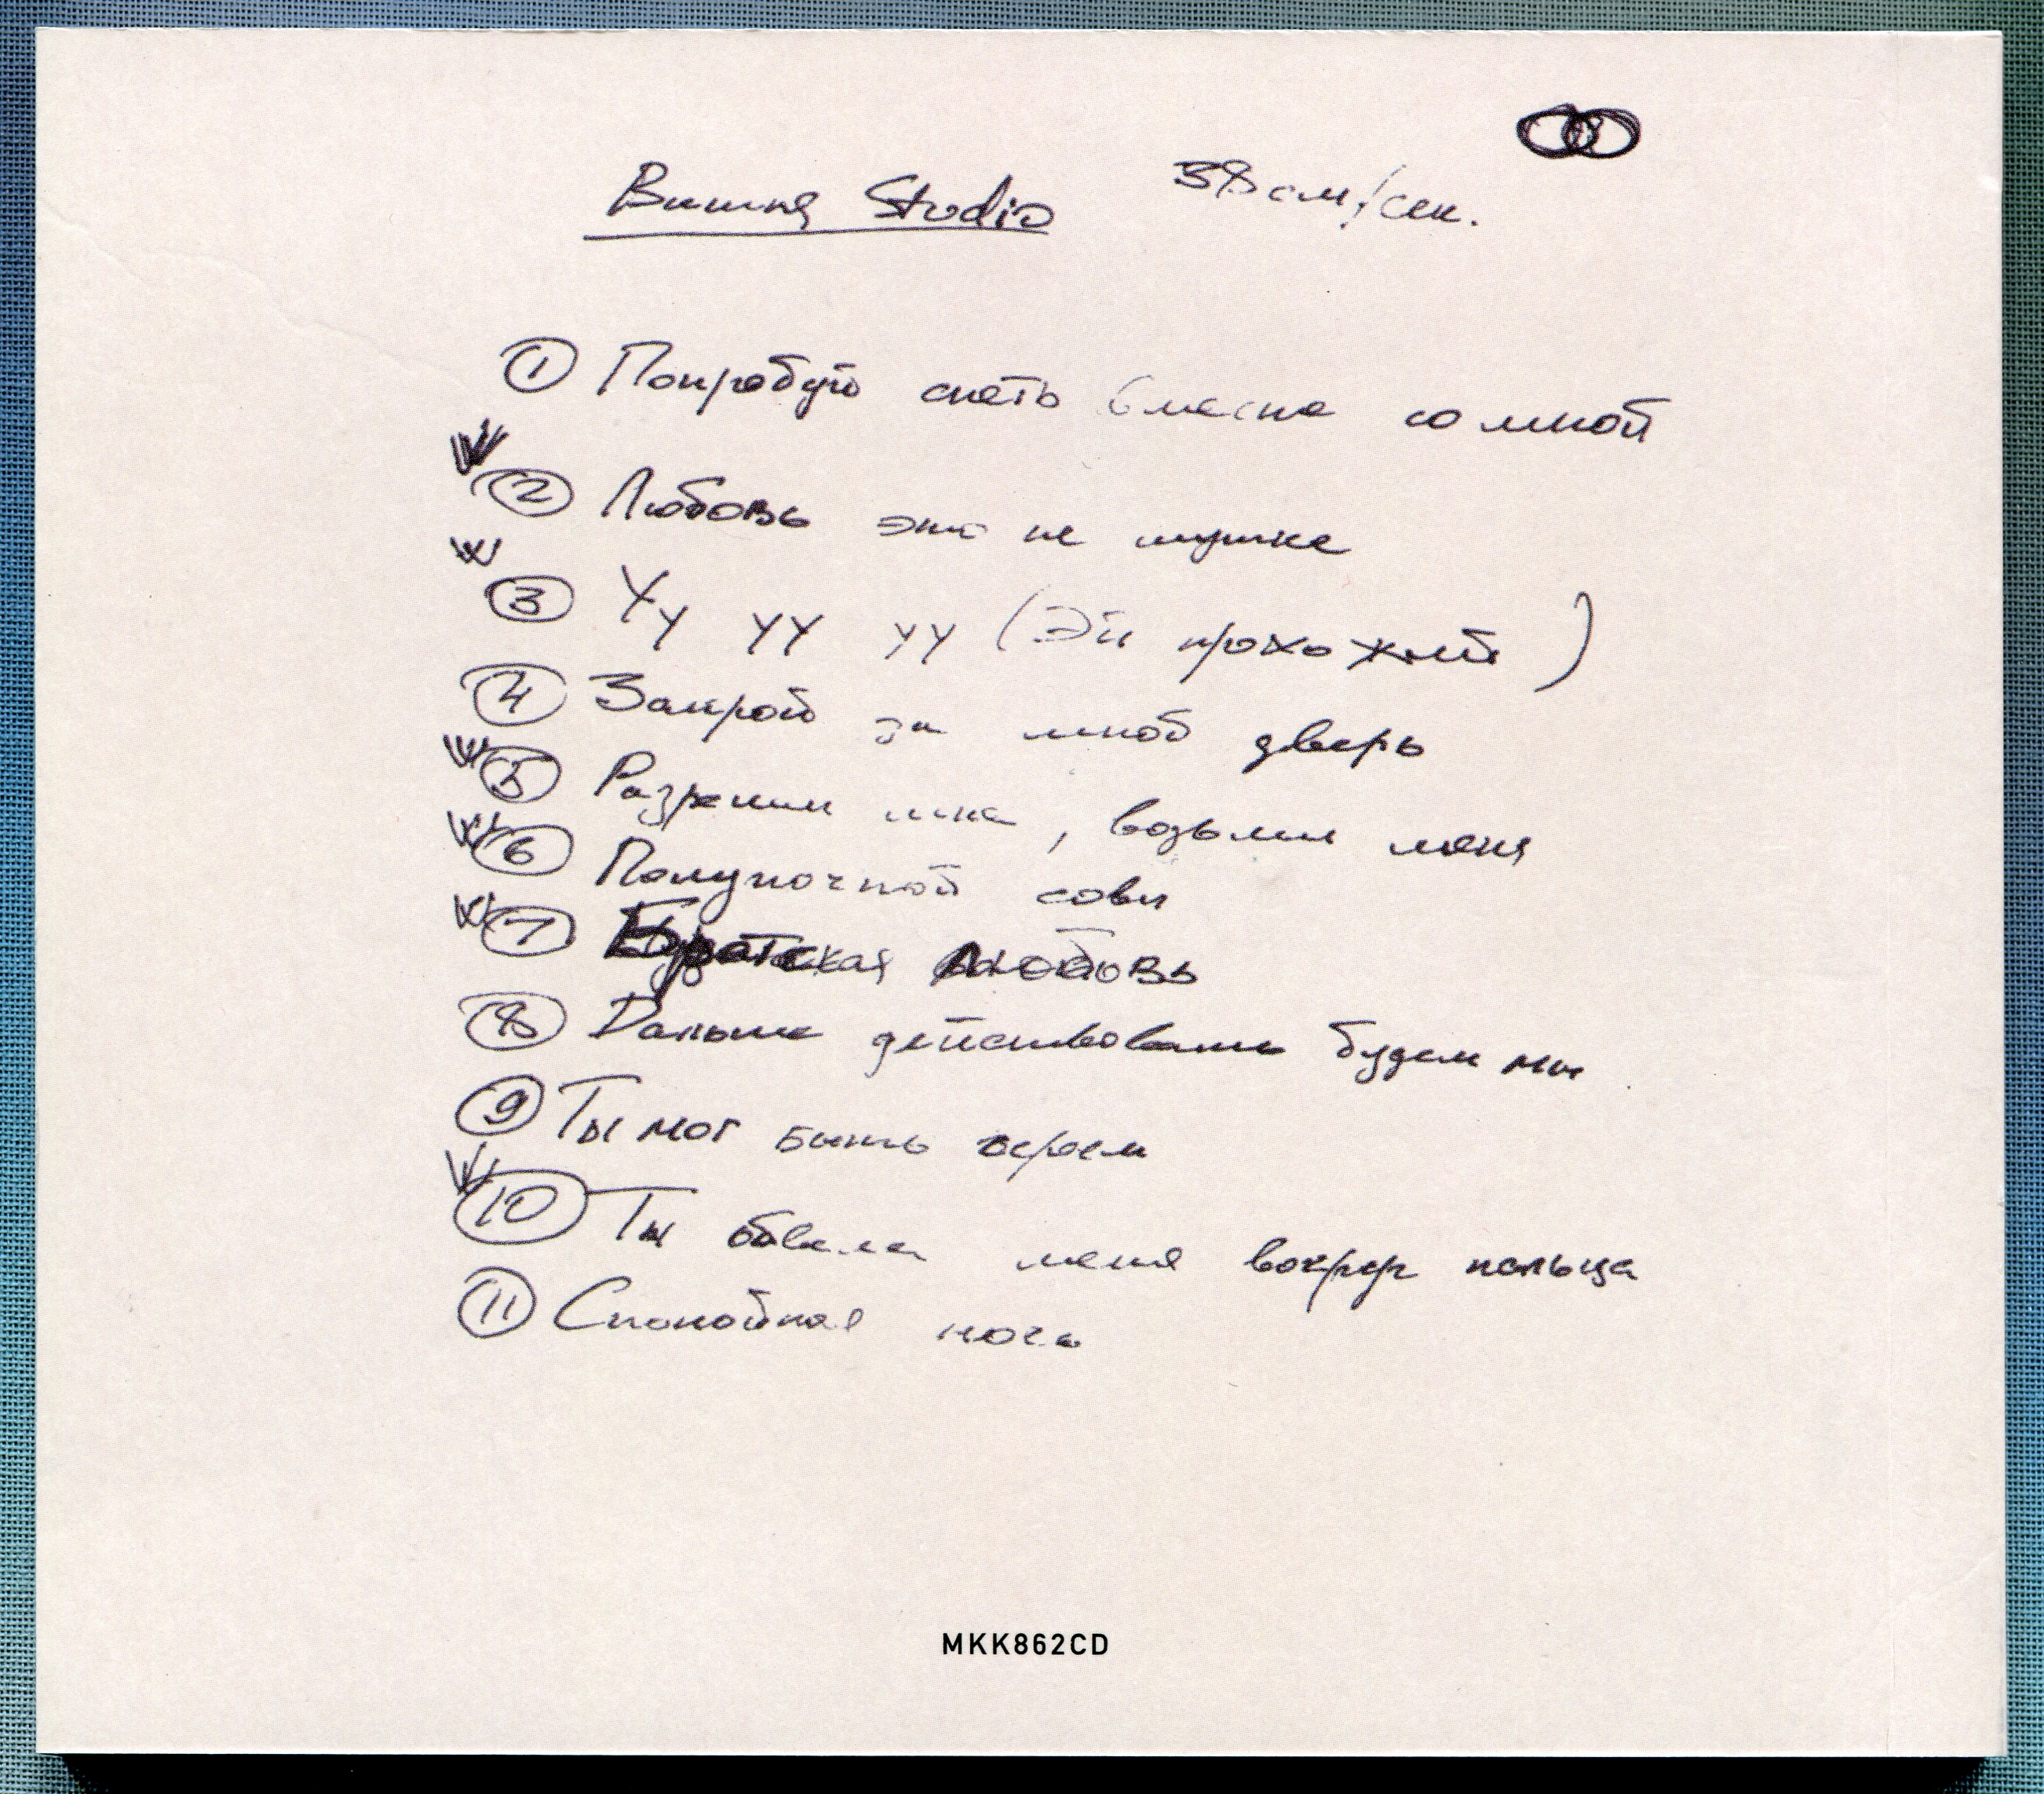 Вишня Studio 38 см/сек.
① Попробуй спеть вместе со мной
② Любовь это не шутка
③ Уу уу уу (Эй прохожий)
④ Закрой за мной дверь
⑤ Разреши мне, возьми меня
⑥ Полуночной совы
⑦ Братская любовь
⑧ Дальше действовать будем мы
⑨ Ты мог быть героем
⑩ Ты обвела меня вокруг пальца
⑪ Спокойная ночь
MKK862CD